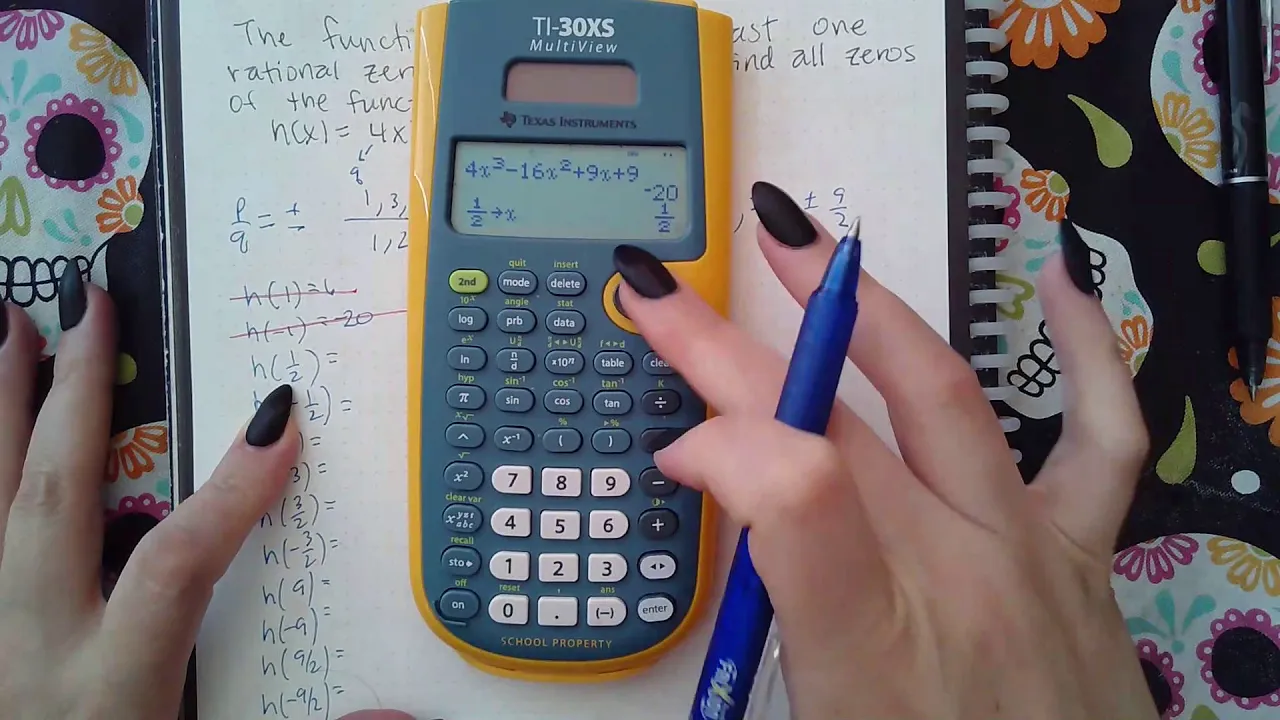 The functi ast one
rational zer ind all zeros
of the func
h(x) = 4x
q
p/q = ± 1, 3, / 1, 2 , ± 9/2
h(1) = 6
h(-1) = -20
h(1/2) =
-1/2) =
) =
3) =
h(3/2) =
h(-3/2) =
h(9) =
h(-9) =
h(9/2) =
h(-9/2) =
TI-30XS
MultiView
TEXAS INSTRUMENTS
4x³-16x²+9x+9
-20
1/2→x 1/2
quit insert
2nd mode delete
10ˣ angle stat
log prb data
eˣ f◄►d
ln n/d x10ⁿ table clea
hyp sin⁻¹ cos⁻¹ tan⁻¹ K
π sin cos tan ÷
ˣ√ % ►%
^ x⁻¹ ( )
√
x² 7 8 9 −
clear var
xyzt abc 4 5 6 +
recall
sto► 1 2 3 ◄►
off reset , ans
on 0 . (−) enter
SCHOOL PROPERTY